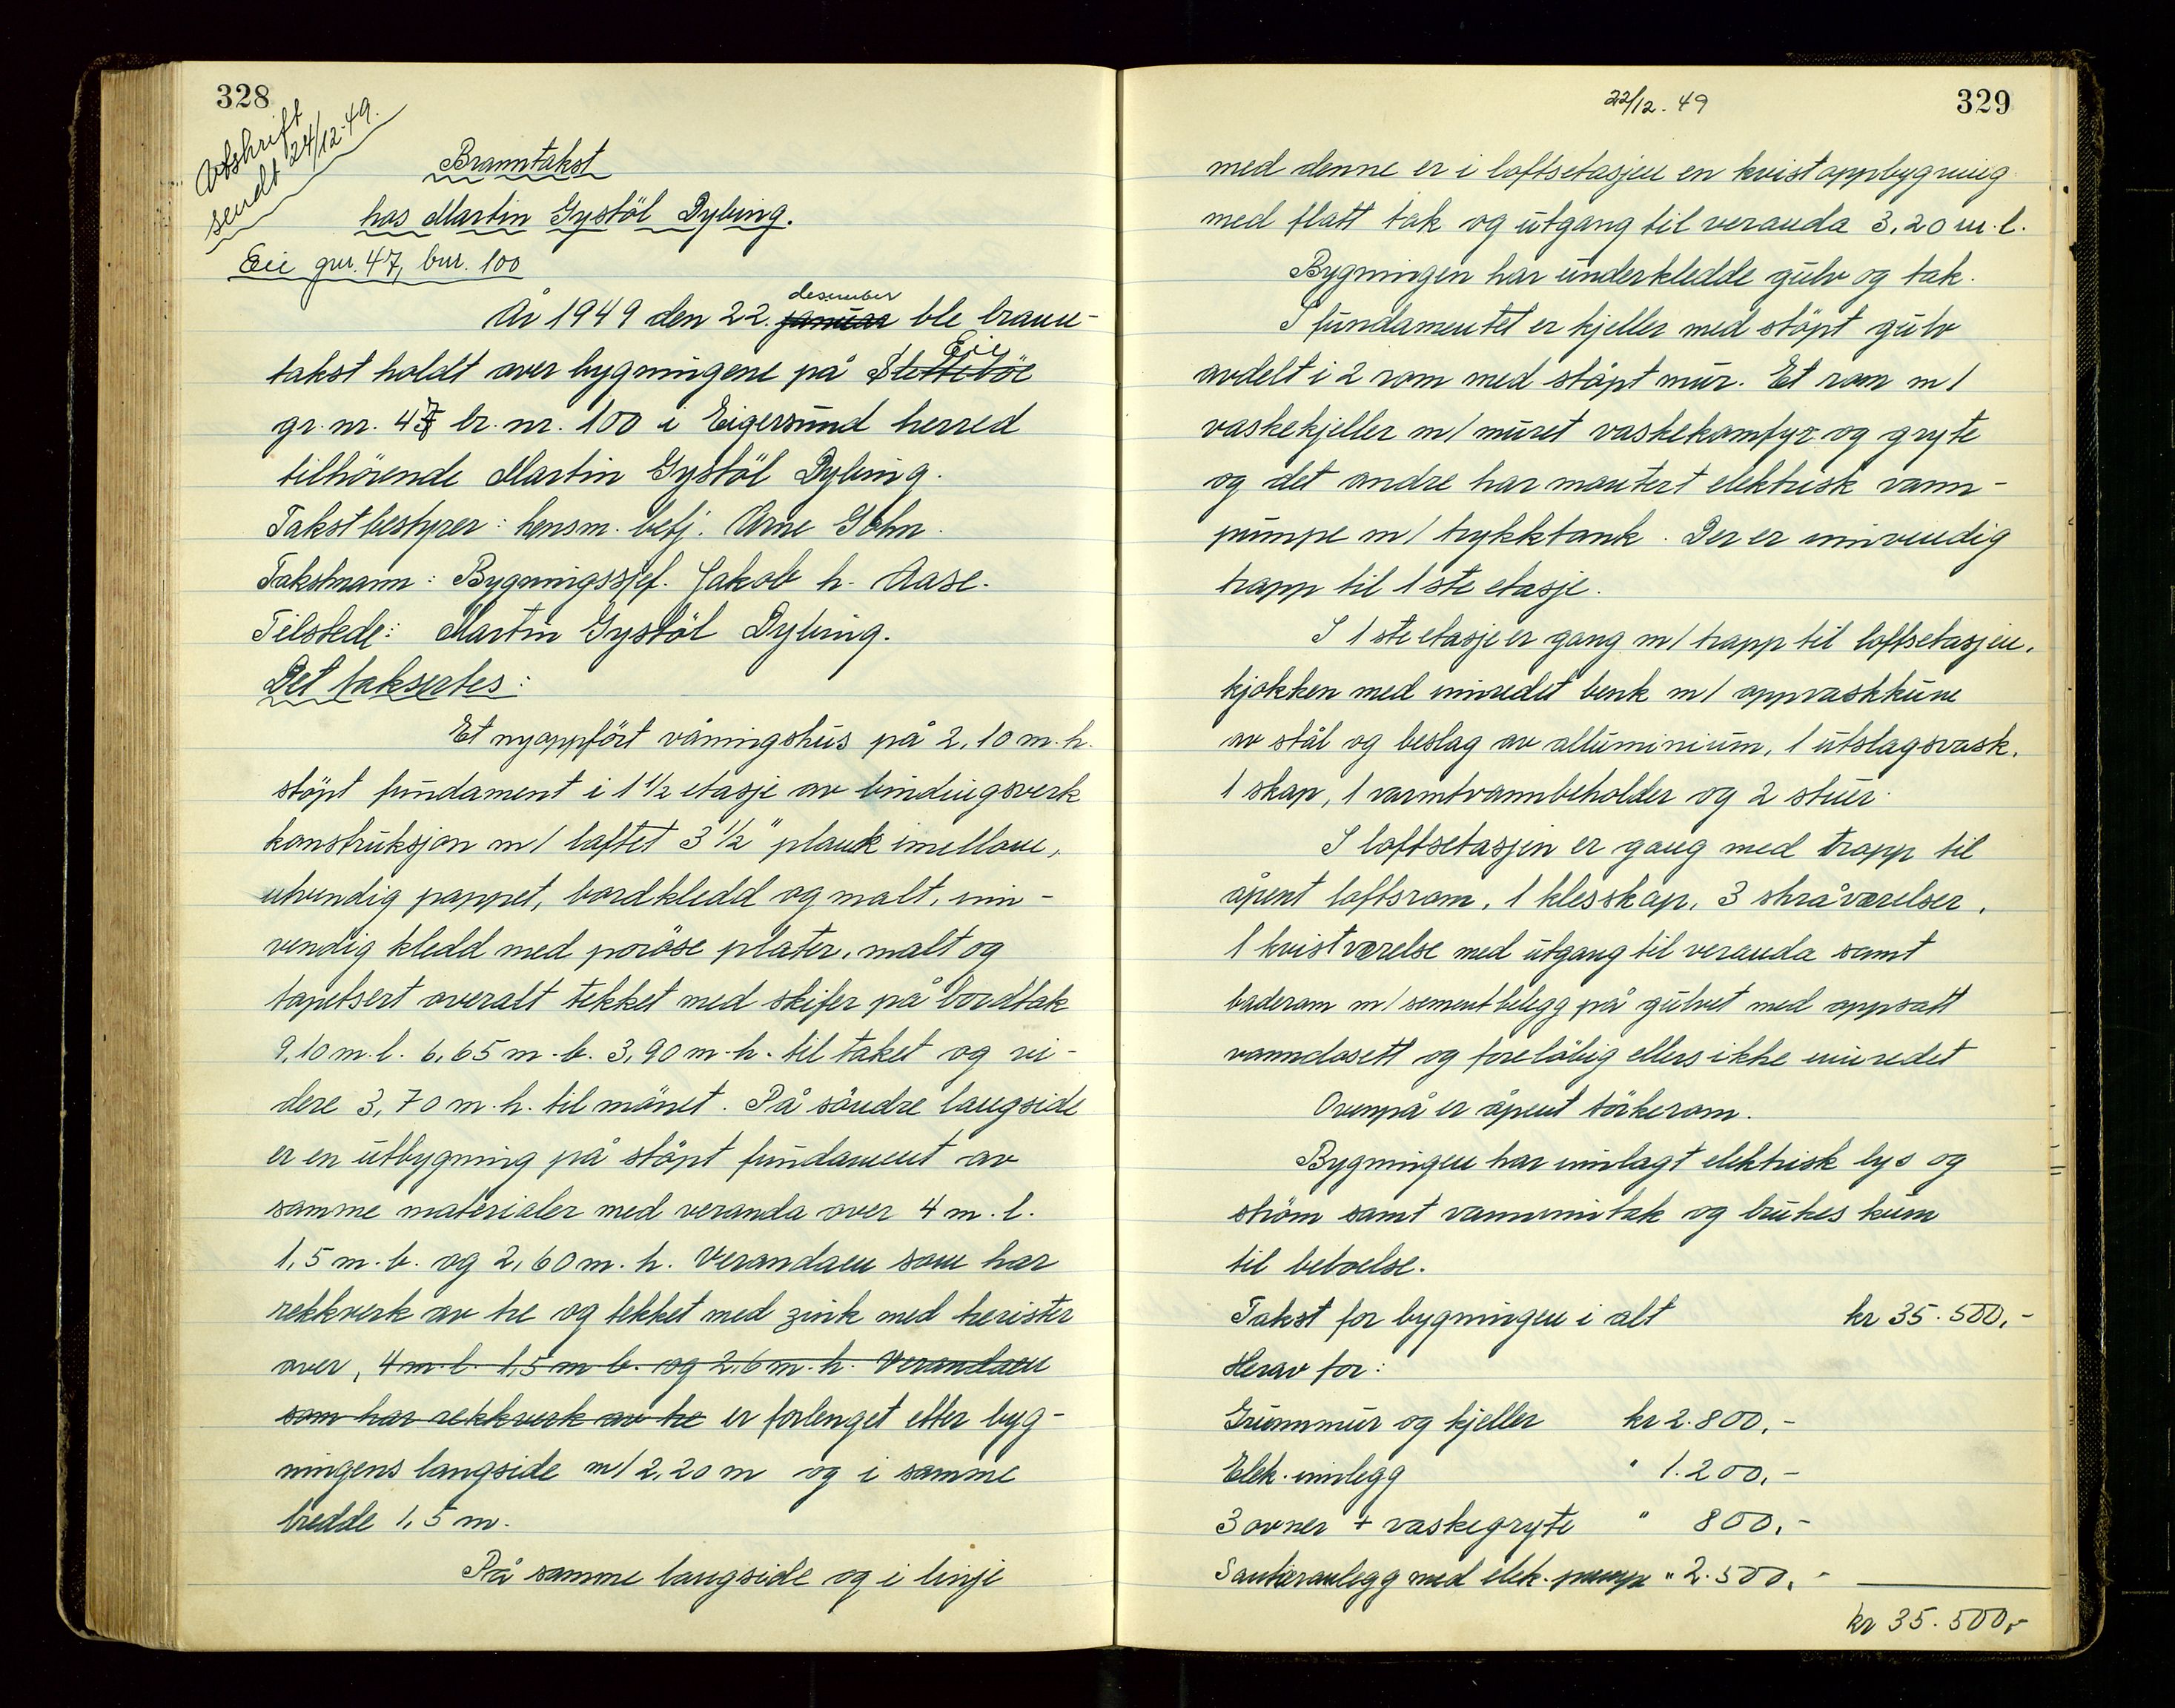 328
Avskrift
sendt 24/12-49.
Branntakst
hos Martin Gystöl Dybing.
Eie gnr. 47, bnr. 100
desember
År 1949 den 22. januar ble brann-
Eie
takst holdt over bygningene på Sletteböe
gr. nr. 47 br. nr. 100 i Eigersund herred
tilhörende Martin Gystöl Dybing.
Takstbestyrer: lensm. betj. Arne Gohn.
Takstmann: Bygningssjef. Jakob h. Aase.
Tilstede: Martin Gystöl Dybing.
Det taksertes:
Et nyoppfört våningshus på 2,10 m. h.
stöpt fundament i 1 1/2 etasje av bindingsverk
konstruksjon m/ laftet 3 1/2" plank imellom,
utvendig pappet, bordkledd og malt, inn-
vendig kledd med poröse plater, malt og
tapetsert overalt tekket med skifer på bordtak
9,10 m. l. 6,65 m. b. 3,90 m. h. til taket og vi-
dere 3,70 m. h. til mönet. På söndre langside
er en utbygning på stöpt fundament av
samme materialer med veranda over 4 m. l.
1,5 m. b. og 2,60 m. h. Verandaen som har
rekkverk av tre og tekket med zink med trerister
over, 4 m. l. 1,5 m b. og 2,6 m. h. Verandaen
som har rekkverk av tre er forlenget etter byg-
ningens langside m/ 2,20 m og i samme
bredde 1,5 m.
På samme langside og i linje
22/12. 49
329
med denne er i loftsetasjen en kvistoppbygning
med flatt tak og utgang til veranda 3,20 m. l.
Bygningen har underkledde gulv og tak.
I fundamentet er kjeller med stöpt gulv
avdelt i 2 rom med stöpt mur. Et rom m/
vaskekjeller m/ muret vaskekomfyr og gryte
og det andre har montert elektrisk vann-
pumpe m/ trykktank. Der er innvendig
trapp til 1ste etasje.
I 1ste etasje er gang m/ trapp til loftsetasjen,
kjøkken med innredet benk m/ oppvaskkum
av stål og beslag av alluminium, 1 utslagsvask,
1 skap, 1 varmtvannbeholder og 2 stuer.
I loftsetasjen er gang med trapp til
åpent loftsrom, 1 klesskap, 3 skråværelser,
1 kvistværelse med utgang til veranda samt
baderom m/ sementbelegg på gulvet med oppsatt
vannclosett og forelöbig ellers ikke innredet
Ovenpå er åpent törkerom.
Bygningen har innlagt elektrisk lys og
ström samt vanninntak og brukes kun
til beboelse.
Takst for bygningen i alt kr 35.500,-
Herav for:
Grunnmur og kjeller kr 2.800,-
Elek. innlegg " 1.200,-
3 ovner + vaskegryte " 800,-
Sanitæranlegg med elek. pumpe " 2.500,-
kr 35.500,-